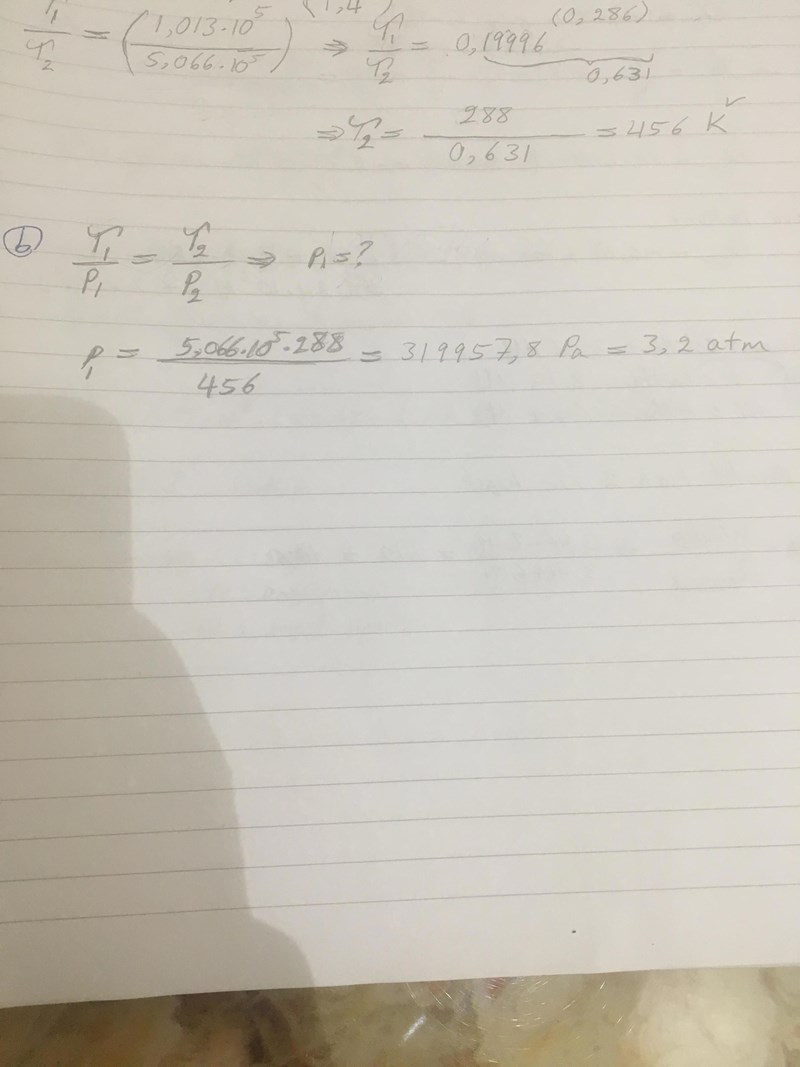 (1,4)
T₁/T₂ = (1,013·10⁵/5,066·10⁵) ⇒ T₁/T₂ = 0,19996^(0,286)
0,631
⇒ T₂ = 288/0,631 = 456 K ✓
(b) T₁/P₁ = T₂/P₂ ⇒ P₁ = ?
P₁ = 5,066·10⁵·288/456 = 319957,8 Pa = 3,2 atm